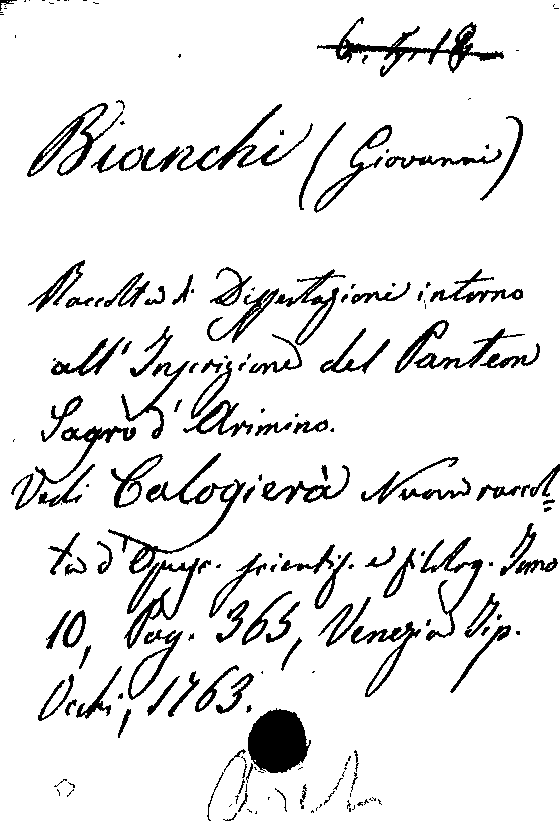 Bianchi (Giovanni)
Raccolta di Dissertazioni intorno
all' Inscrizione del Panteon
Sagro d' Arimino.
Vedi Calogierà Nuova raccol=
ta d' Opusc. scientif. e filolog. Tomo
10, Pag. 365, Venezia Tip.
Occhi, 1763.